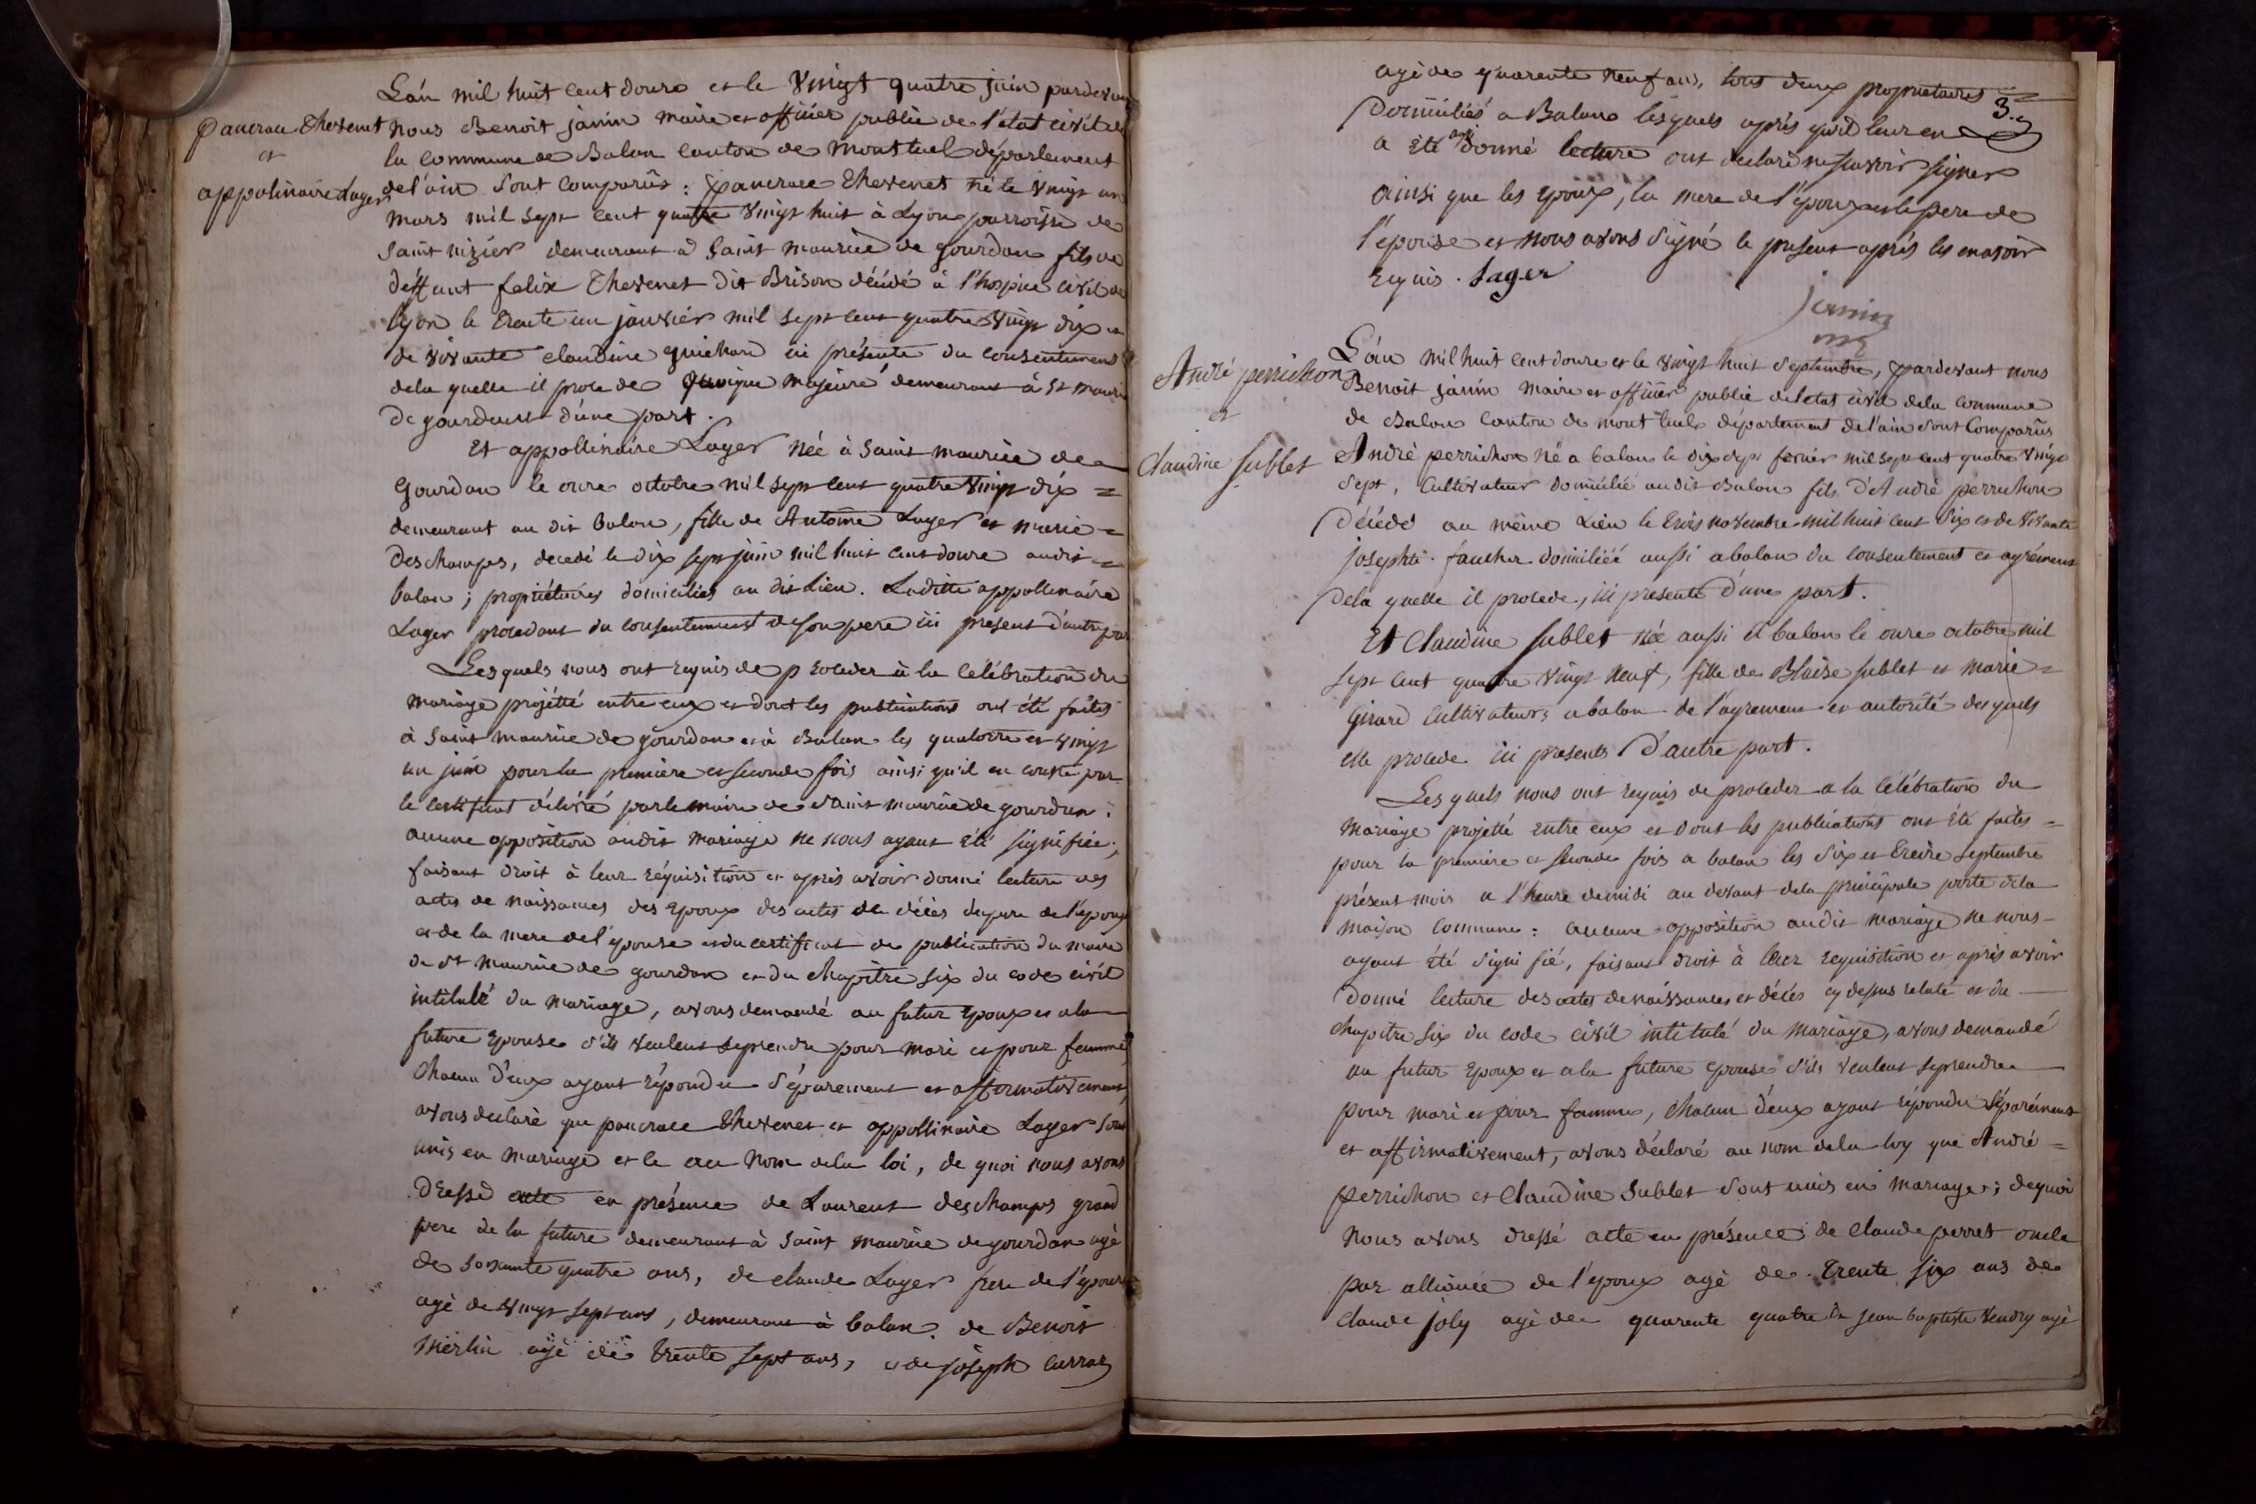 Pancrace Thevenet
et
appolinaire Lager
L'an mil huit cent douze et le vingt quatre juin pardevant
nous Benoit janin maire et officier public de l'état civil de
la commune de Balan canton de Montluel département
de l'ain sont comparûs : pancrace Thevenet né le vingt un
mars mil sept cent quatre vingt huit à Lyon parroisse de
saint nizier demeurant a Saint maurice de gourdan fils de
deffunt felix Thevenet dit Brison décédé à l'hospice civil de
lyon le trente un janvier mil sept cent quatre vingt dix
de vivante claudine guichard ici présente du consentement
de la quelle il procede quoique majeure demeurant à St mauri
De gourdan d'une part.
Et appollinaire Lager née à Saint maurice de
Gourdan le onze octobre mil sept cent quatre vingt dix =
demeurant au dit balan, fille de Antoine Lager et marie =
Deschamps, decedé le dix sept juin mil huit cent douze audit =
balan ; propriétaires domiciliés au dit Lieu. Laditte appollinaire
Lager procedant du consentement de son pere ici present d'autre par
Lesquels nous ont requis de proceder à la célébration du
mariage projétté entre eux et dont les publications ont été faites
à Saint maurice de gourdan et à Balan les quatorze et vingt
un juin pour la premiere et seconde fois ainsi qu'il en conste par
le certificat délivré par le maire de Saint maurice de gourdan :
aucune opposition audit mariage ne nous ayant été signifiée ;
faisant droit à leur réquisition et après avoir donné lecture des
actes de naissances des epoux des actes de décès du pere de l'epoux
et de la mere de l'épouse et du certificat de publication du maire
de St maurice de gourdan et du chapitre six du code civil
intitulé du mariage, avons demandé au futur epoux et a la
future epouse s'ils veulent se prendre pour mari et pour femme
Chacun d'eux ayant répondu séparement et affirmativement,
avons declaré que pancrace Thevenet et appollinaire Lager sont
unis en mariage et le au nom de la loi, de quoi nous avons
Dressé acte en présence de Laurent deschamps grand
pere de la future demeurant à Saint maurice de gourdan agé
de soixante quatre ans, de claude Lager frere de l'épouse
agé de vingt sept ans, demeurant à balan. de Benoit
Merlin agé de trente sept ans, et de joseph carraz
3.e
agé de quarente neuf ans, tous deux propriétaires
Domiciliés a Balan lesquels après qu'il leur en
a été donné lecture ont declaré ne savoir signer
ainsi que les epoux, la mere de l'époux et le pere de
l'épouse et nous avons signé le présent après les en avoir
requis. Lager
janin
m.e
André perrichon
et
Claudine Sublet
L'an mil huit cent douze et le vingt huit septembre, pardevant nous
Benoit janin maire et officier public de letat civil de la commune
de Balan canton de montluel département de l'ain sont comparûs
André perrichon né a balan le dix sept fevrier mil sept cent quatre vingt
sept, cultivateur domicilié audit Balan fils d'André perrichon
Décédé au même Lieu le trois novembre mil huit cent six et de vivante
josephte faucher domiciliée aussi a balan du consentement et agrément
De la quelle il procede, ici presente d'une part.
Et Claudine Sublet née aussi à balan le onze octobre mil
sept cent quatre vingt neuf, fille de Blaise Sublet et marie =
Girard cultivateurs a balan de l'agrement et autorité desquels
elle procede ici presents d'autre part.
Lesquels nous ont requis de proceder a la célébration du
Mariage projetté entre eux et dont les publications ont été faites =
pour la premiere et seconde fois a balan les six et treize septembre
présent mois a l'heure de midi au devant de la principale porte de la
maison commune : aucune opposition audit mariage ne nous
ayant été signifié, faisant droit à leur requisition et après avoir
Donné lecture des actes de naissances et décés cy dessus relaté et du
chapitre six du code civil intitulé du mariage, avons demandé
au futur epoux et a la future epouse s'ils veulent se prendre
pour mari et pour femme, chacun d'eux ayant répondu séparément
et affirmativement, avons déclaré au nom de la loy que André =
perrichon et Claudine Sublet sont unis en mariage ; de quoi
Nous avons dressé acte en présence de claude perret oncle
par alliance de l'epoux agé de trente six ans de
claude joly agé de quarente quatre de jean baptiste vendry agé